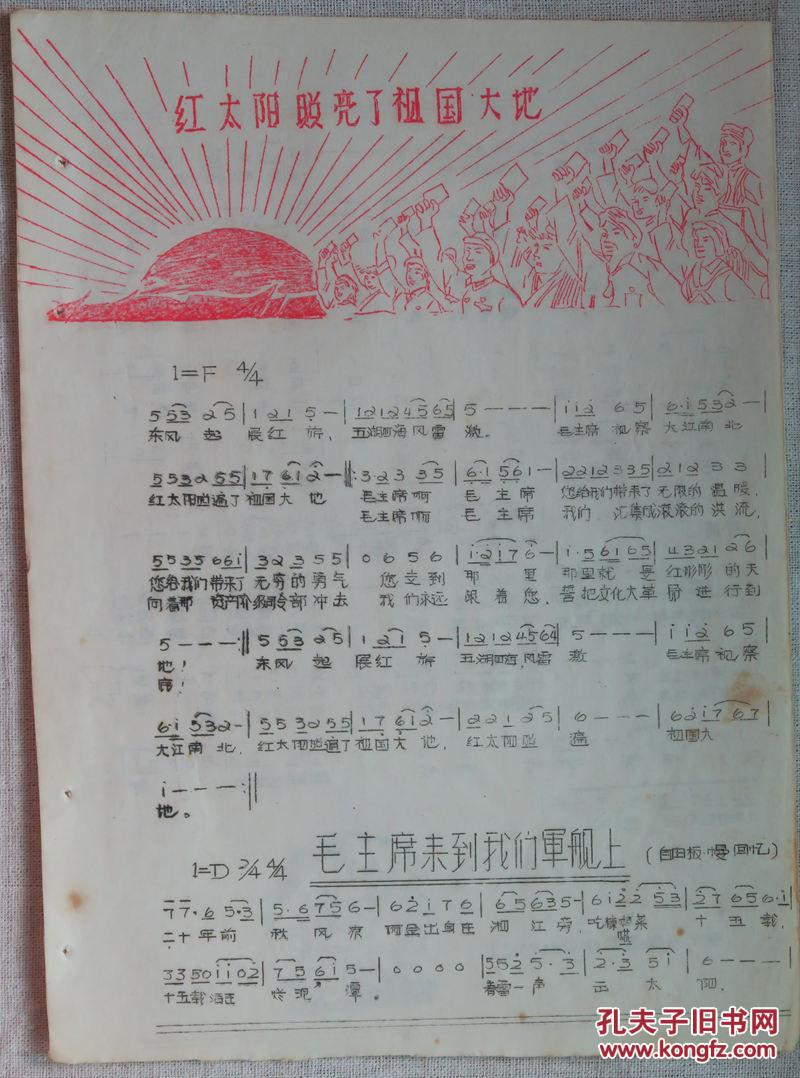 红太阳照亮了祖国大地
1=F 4/4
5 53 25 | 1 21 5 - | 1212 4565 | 5 - - - | i i2 65 | 6·i 532 - |
东风 起 展红 旂, 五湖四海风雷 激. 毛主席 视察 大江南北
5532 55 | 17 612 - ‖: 3·23 35 | 6·1 561 - | 2212335 | 212 3 3 |
红太阳照遍了 祖国大 地 毛主席啊 毛 主 席 您给我们带来了 无限的 温暖,
毛主席啊 毛 主 席 我们 汇集成滚滚的 洪 流,
5535 661 | 323 55 | 0 6 5 6 | i·2i7 6 - | i·56165 | 4321 26 |
您给我们带来了 无穷的 勇气 您走到 那 里 那里就 是 红彤彤 的天
向着那 资产阶级司令部 冲去 我们永远 跟着您, 誓把文化大革 命 进 行到
5 - - - :‖ 5 53 25 | 1 21 5 - | 1212 4564 | 5 - - - | i i2 65 |
地! 东风 起 展红 旂 五湖四海,风雷 激 毛主席 视察
底!
6·i 532 - | 5532 55 | 17 612 - | 221 25 | 6 - - - | 62i7 67 |
大江南 北, 红太阳照遍了 祖国大 地, 红太阳照 遍 祖国大
i - - - :‖
地。
1=D 3/4 4/4 毛主席来到我们軍舰上 (自由板·慢 回忆)
77·6 5·3 | 5·675 6 - | 62i76 | 65635 - | 6i22 53 | 27 656·i |
二十年前 秋风凉 阿圭出身在 湘江旁, 吃糠 菜 十五载,
咽
3350iio2 | 75 6i 5 - | 0 0 0 0 | 552 5·3 | 2·3 5i | 6 - - - |
十五载 泪汪 烂泥 潭. 春雷一声 出太 阳,
孔夫子旧书网
www.kongfz.com